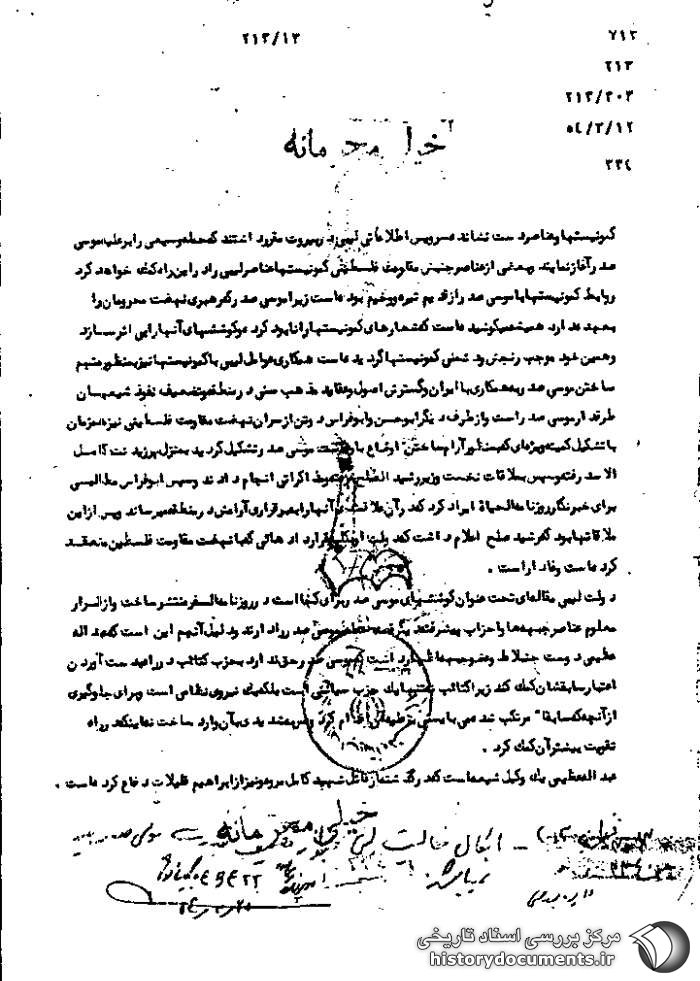 ۲۱۲/۱۳
۷۱۲
۲۱۳
۲۱۲/۲۰۳
۵۴/۲/۱۲
۲۲۴
خیلی محرمانه
کمونیستها و عناصر دست نشانده سرویس اطلاعاتی لیبی در بیروت مقرر داشتند که حمله وسیعی را بر علیه موسی
صدر آغاز نمایند و بعضی از عناصر جنبش مقاومت فلسطین کمونیستها و عناصر لیبی را در این راه کمک خواهد کرد
روابط کمونیستها با موسی صدر از قدیم تیره و وخیم بوده است زیرا موسی صدر که رهبری نهضت محرومان را
بعهده دارد همیشه میکوشید تا شعارهای کمونیستها را نابود کرده و کوششهای آنها را بی اثر سازد
و همین خود موجب رنجش و دشمنی کمونیستها گردیده است همکاری عوامل لیبی با کمونیستها نیز بمنظور متهم
ساختن موسی صدر به همکاری با ایران و گسترش اصول و عقاید مذهب سنی در منطقه و تضعیف نفوذ شیعیان
طرفدار موسی صدر است و از طرف دیگر ابوحسن و ابوفراس دو تن از سران نهضت مقاومت فلسطین نیز همزمان
با تشکیل کمیته ویژه ای که بمنظور آرام ساختن اوضاع با موسی صدر تشکیل گردید بمنزل پرزیدنت کامل
الاسعد رفته و سپس ملاقات نخست وزیر رشید الصلح مذاکراتی انجام دادند و سپس ابوفراس مطالبی
برای خبرنگار روزنامه الحیاة ایراد کرد که در آن علاقه آنها را به برقراری آرامش در منطقه میرساند و پس از این
ملاقاتها بود که رشید صلح اعلام داشت که دولت او بکلیه قراردادهائی که با نهضت مقاومت فلسطین منعقد
کرده است وفادار است .
دولت لیبی مقاله ای تحت عنوان کوششهای موسی صدر برای کتائب در روزنامه السفیر منتشر ساخت و از اسرار
معلوم عناصر جبهه ها و احزاب پیشرفته موسی صدر را دارند و دلیل آنهم این است که عبداله
عظیمی دوست جنبلاط و عضو جبهه اظهار داشت موسی صدر حق ندارد بحزب کتائب در راه بدست آوردن
اعتبار سابقشان کمک کند زیرا کتائب نه تنها یک حزب سیاسی است بلکه یک نیروی نظامی است و برای جلوگیری
از آنچه که سابقا" مرتکب شده می بایستی بر علیه اقدام کرد و ضربه شدیدی بآن وارد ساخت نه اینکه در راه
تقویت بیشتر آن کمک کرد .
عبدالعظیمی یک وکیل شیعه است که در گذشته از قاتل شهید کامل مروه و نیز از ابراهیم قلیلات دفاع کرده است .
خیلی محرمانه
مرکز بررسی اسناد تاریخی
historydocuments.ir